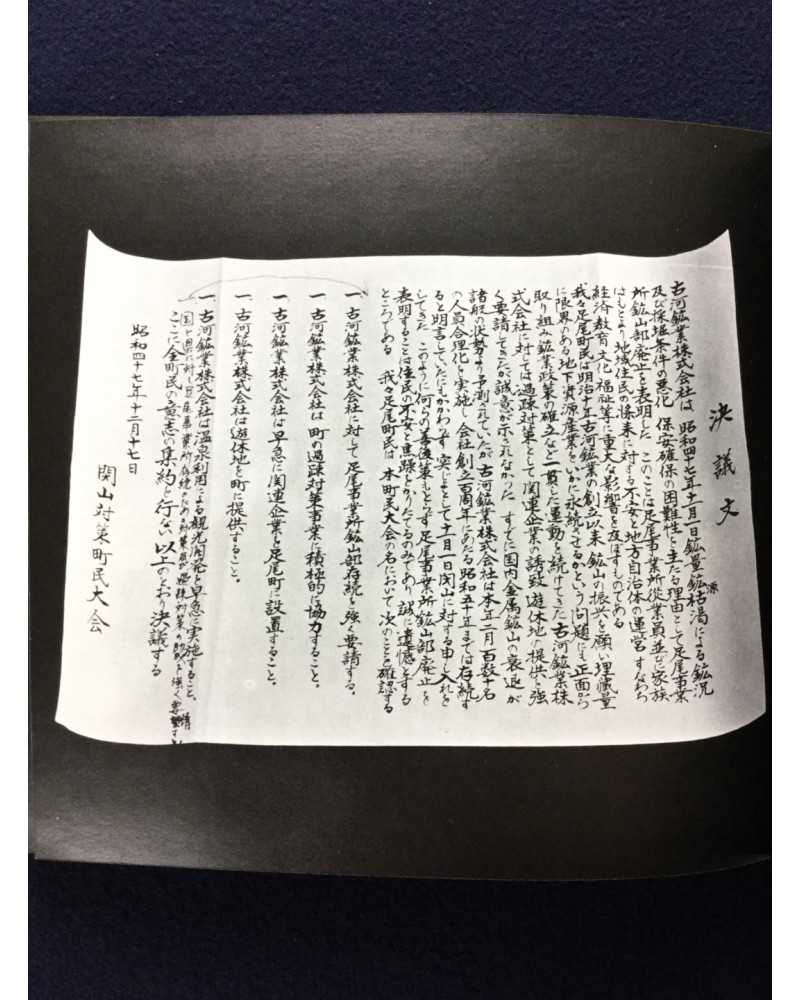 決議文
古河鉱業株式会社は 昭和四十七年十一月一日鉱量鉱源枯渇による鉱況
及び採掘条件の悪化 保安確保の困難性を主たる理由として足尾事業
所鉱山部廃止を表明した このことは足尾事業所従業員並び家族
はもとより地域住民の将来に対する不安と地方自治体の運営 すなわち
経済教育文化福祉等に重大な影響を及ぼすものである
我々足尾町民は明治十年古河鉱業の創立以来 鉱山の振興を願い埋蔵量
に限界のある地下資源産業をいかに永続させるかという問題にも正面から
取り組み鉱業政策の確立など一貫した運動を続けてきた 古河鉱業株
式会社に対しては過疎対策として関連企業の誘致 遊休地の提供を強
く要請してきたが誠意が示されなかった すでに国内金属鉱山の衰退が
諸般の状勢より予測されていたが古河鉱業株式会社は本年二月百数十名
の人員合理化を実施し 会社創立百周年にあたる昭和五十年までは存続す
ると明言していたにもかかわらず 突じょとして十一月一日閉山に対する申し入れを
してきた このように何らの善後策ももとらず足尾事業所鉱山部廃止を
表明することは住民の不安と焦躁をかりたてるのみであり 誠に遺憾とする
ところである 我々足尾町民は 本町民大会の名において次のことを確認する
一、古河鉱業株式会社に対して足尾事業所鉱山部存続を強く要請する。
一 古河鉱業株式会社は町の過疎対策事業に積極的に協力すること。
一、古河鉱業株式会社は早急に関連企業を足尾町に設置すること。
一、古河鉱業株式会社は遊休地を町に提供すること。
一、古河鉱業株式会社は温泉利用による観光開発を早急に実施すること。
一 国と県に対し足尾事業所存続のため
ここに全町民の意志の集約を行ない 以上のとおり決議する
昭和四十七年十二月十七日
閉山対策町民大会